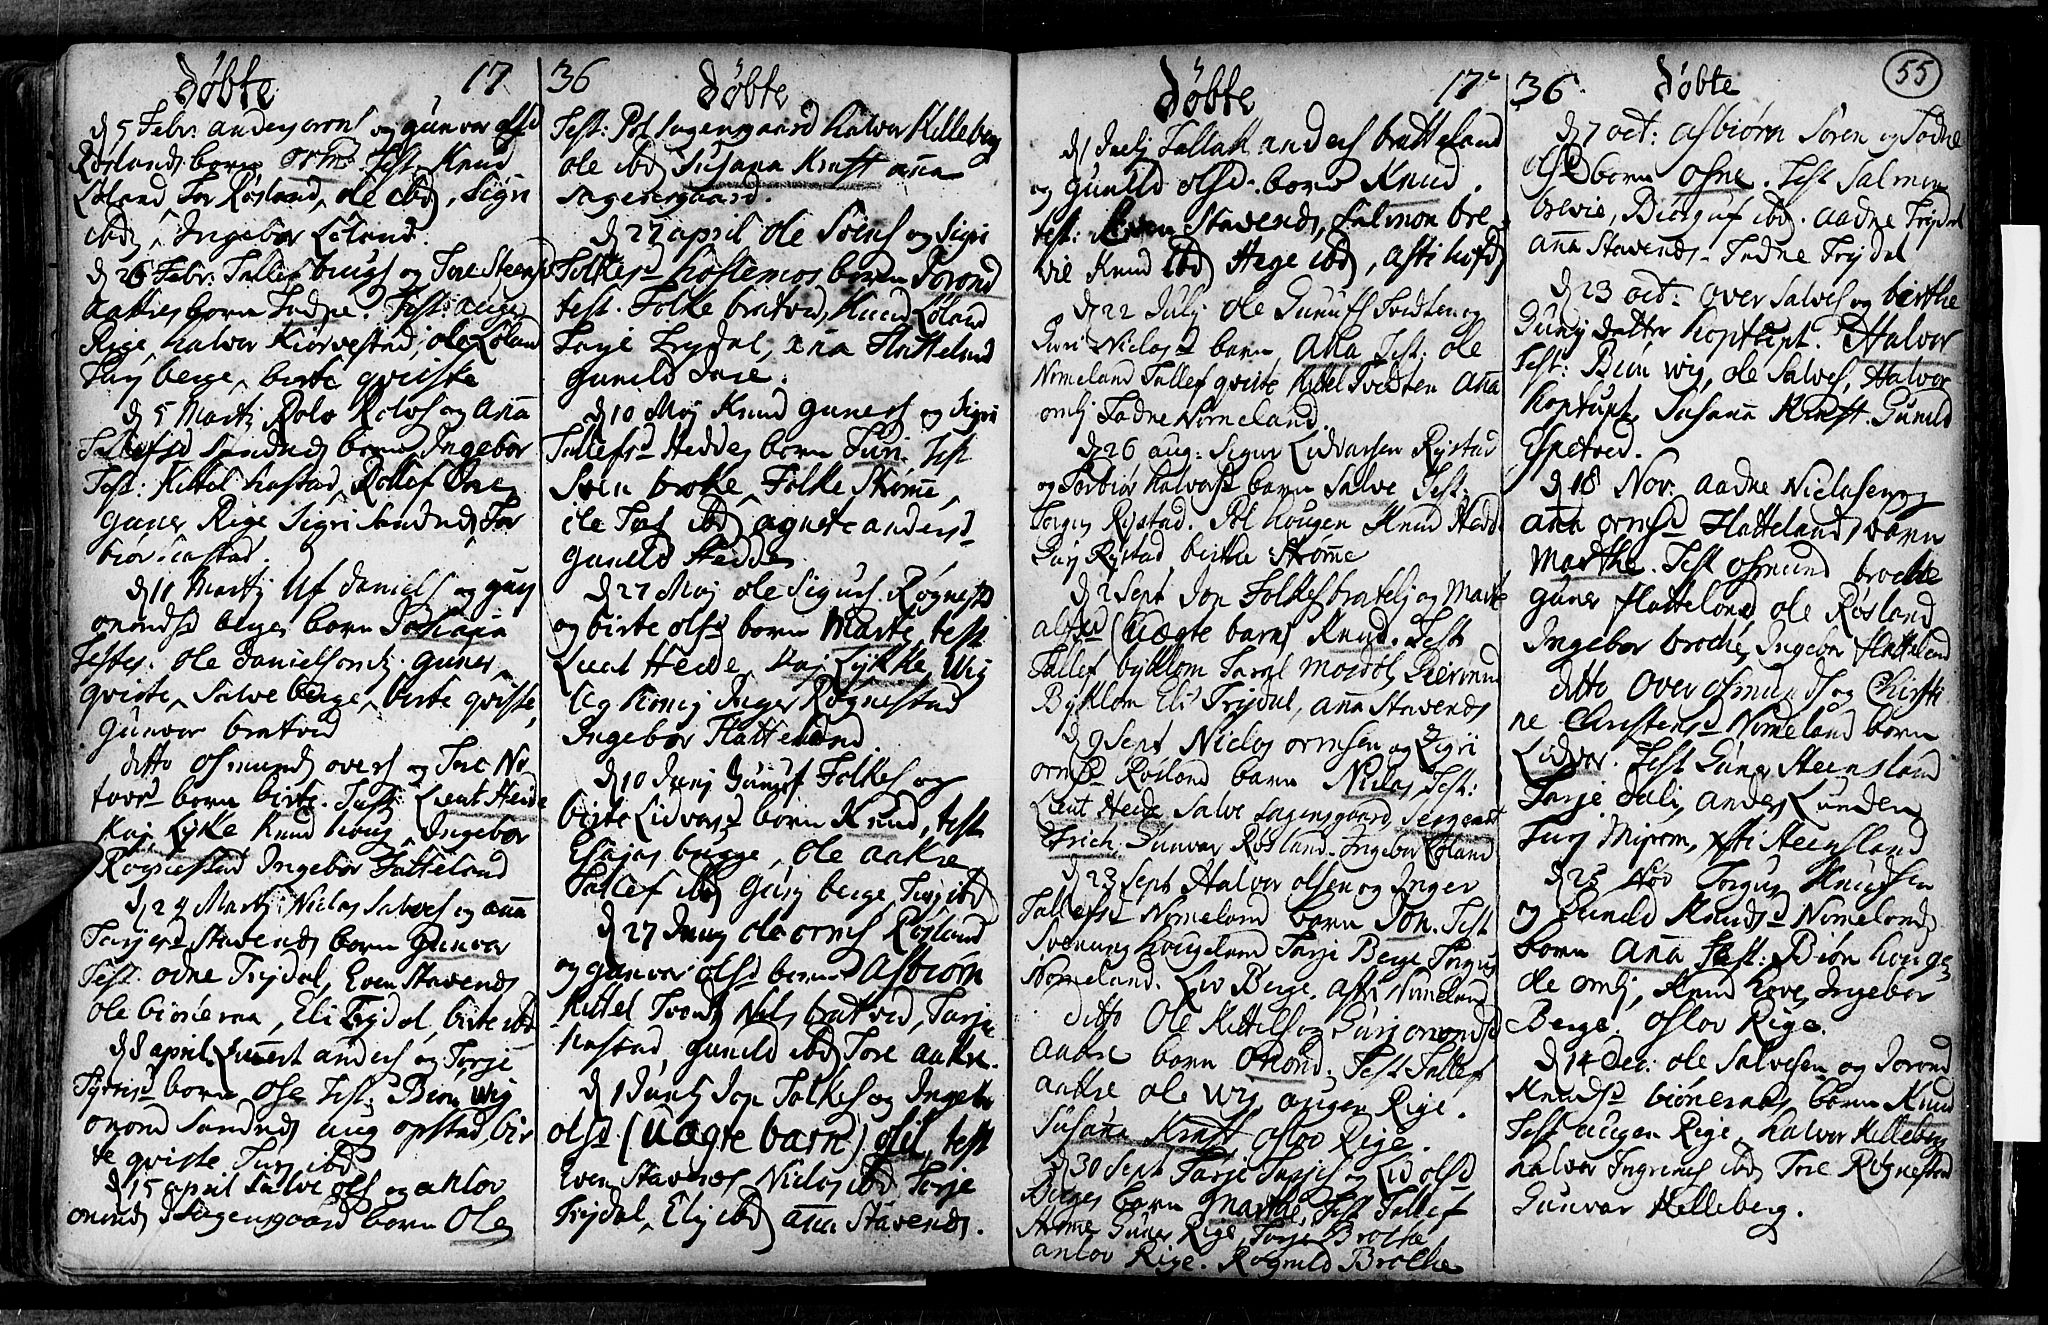 Døbte 17
d 5 Febr: anders orms og gunvor olsd
Røslands barn orm. Test Knud
Løland Tor Røsland, ole ibd, Sigri
ibd, Ingebor Løland.
d 26 Febr: Tallef bugs og Tore Steens
aakre barn Tadne. Test: auge
Rige halvor Kiørvestad, ole Løland
Turj berge, birte qviste
d 5 Martj Rolv Rolvs og Aña
Tallefsd Sandnes barn Ingebor
Test: Kittel hastad, Rollef
guner Rige Sigri Sandnes Tor
biør hastad.
d 11 Martj Ulf daniels og gurj
omondsd berges barn Johana
Testes. ole daniels guner
qviste, Salve berge, birte qviste,
gunvor bratved
ditto osmund overs og Tore No
torsd barn birte. Test: Lieut Heide
Kaj Lykke Knud houg, Ingebor
Rognestad Ingebor Flatteland
d 24 Martj: Niclas Salves og aña
Tarjersd Stavends barn gunvor
Test: odne Trydal, Even Stavends
ole biørneraa, Eli Trydal, birte ibd
d 8 april anders og Torje
barn ose Test: Biørn wig
omond Sandnes aug opstad, bir
te qviste Turj ibd
d 15 april Salve ols og anlov
omonds Sagensgaard barn Ole
36 Døbte
Test: Pol Sagensgaard halvor Killeberg
ole ibd Susana Kraft aña
Sagensgaard.
d 27 april ole Soens og Sigri
Folkesd hoslemos barn Jorond
test. Folke bratved, Knud Løland
Tarje Trydal, aña Flatteland
Gunild
d 10 Maj Knud guners og Sigri
Tallefsd Heddes barn Turi. Test
Soen broke, Folke Strømme,
ole ibd, agnete andersd
gunild Hedde
d 27 Maj ole Sigurs Røgnestd
og birte olsd barn Marte, test
Lieut Heide, Kaj Lykke, Wig
og Konig Inger Røgnestad
Ingebor Flatteland
d 10 Junj Gunuf Folkes og
birte Lidvorsd barn Knud, test
Esajas bugge, ole aakre
Tallef ibd gurj berge, Turj ibd
d 27 Junj ole orms Røsland
og gunvor olsd barn Asbiørn
Kittel Nils bratved, Tarje
hastad, gunild ibd Tore aakre.
d 1 Julj Jon Folkes og Ingebor
olsd (Uægte barn) test
Even Stavends Niclas ibd Torje
Trydal, Elj ibd aña Stavends.
Døbte 17
d 1 Julj Tallak anders bratteland
og gunild olsd. barn Knud.
test: Even Stavends, Salmon bre
vie Knud ibd Hege ibd, asti
d 22 Julj ole Gunufs Tvedten og
Guri Niclasd barn, Aña Test: ole
Nomeland Tallef qviste Kittel Tvedten aña
omlj Tadne Nomeland.
d 26 aug: Sigur Lidvarsen Rystad
og Torbiør halvorsd barn Salve Test:
Torgus Rystad. Pol hougen Knud Hedde
Gurj Rystad, birthe Strømme
d 2 Sept Jon Folkes bratelj og Marte
alfsd (Uægte barn) Knud. Test
Tallef byklom Taral mosdøl,
Byklom Eli Trydal, aña Stavends
d 9 Sept Niclas ormsen og Sigri
ormsd Røsland barn Niclas Test:
Lieut Heide Salve Sagensgaard, Sergeant
Frich. Gunvor Røsland. Ingebor Løland
d 23 Sept Halvor olsen og Inger
Tallefsd Nomeland barn Jon. Test
Svenung hougeland Tarje Berge Torgus
Nomeland. Liv Berge. Asti Nomeland
ditto Ole Kittels og Gurj omondsd
aakre barn omond. Test Tallef
aakre ole wig augen Rige.
Susaña Kraft oslov Rige.
d 30 Sept Tarje Tarjes og Lid olsd
Berges barn Marthe, Test Tallef
Strøme Guner Rige, Torje Broche
anlov Rige. Rognild Brocke
36. Døbte 55
d 7 oct: asbiørn Søren og Tadne
olsd barn osne. Test Salmen
brevie, Biurguf ibd. aadne Trydal
aña Stavends. Tadne Trydal
d 23 oct: over Salves og birthe
Gunj datter hoptupt. Halvor
Test: Biørn wig, ole Salves, Halvor
hoptupt, Susaña Kraft. Gunild
Espetved.
d 18 Nov: aadne Niclasen og
aña ormsd Flatteland barn
Marthe. Test osmund broche
guner flatteland ole Røsland
Ingebor broche, Ingebor flatteland
ditto over osmunds og Chirsti
ne Christensd Nomeland barn
Lidvor. Test Guner Steensland
Tarje Dalj, anders Lunden
Turj Asti Steensland
d 25 Nov Torgus Knudsen
og Gunild Knudsd Nomelands
barn Aña Test: Biørn houge
ole omlj, Knud hove, Ingebor
Berge. oslov Rige.
d 14 Dec: ole Salvesen og Jorond
Knudsd biørneraas barn Knud
Test augen Rige, halvor Killeberg
halvor ibd Tore Røgnestad
Gunvor Killeberg.